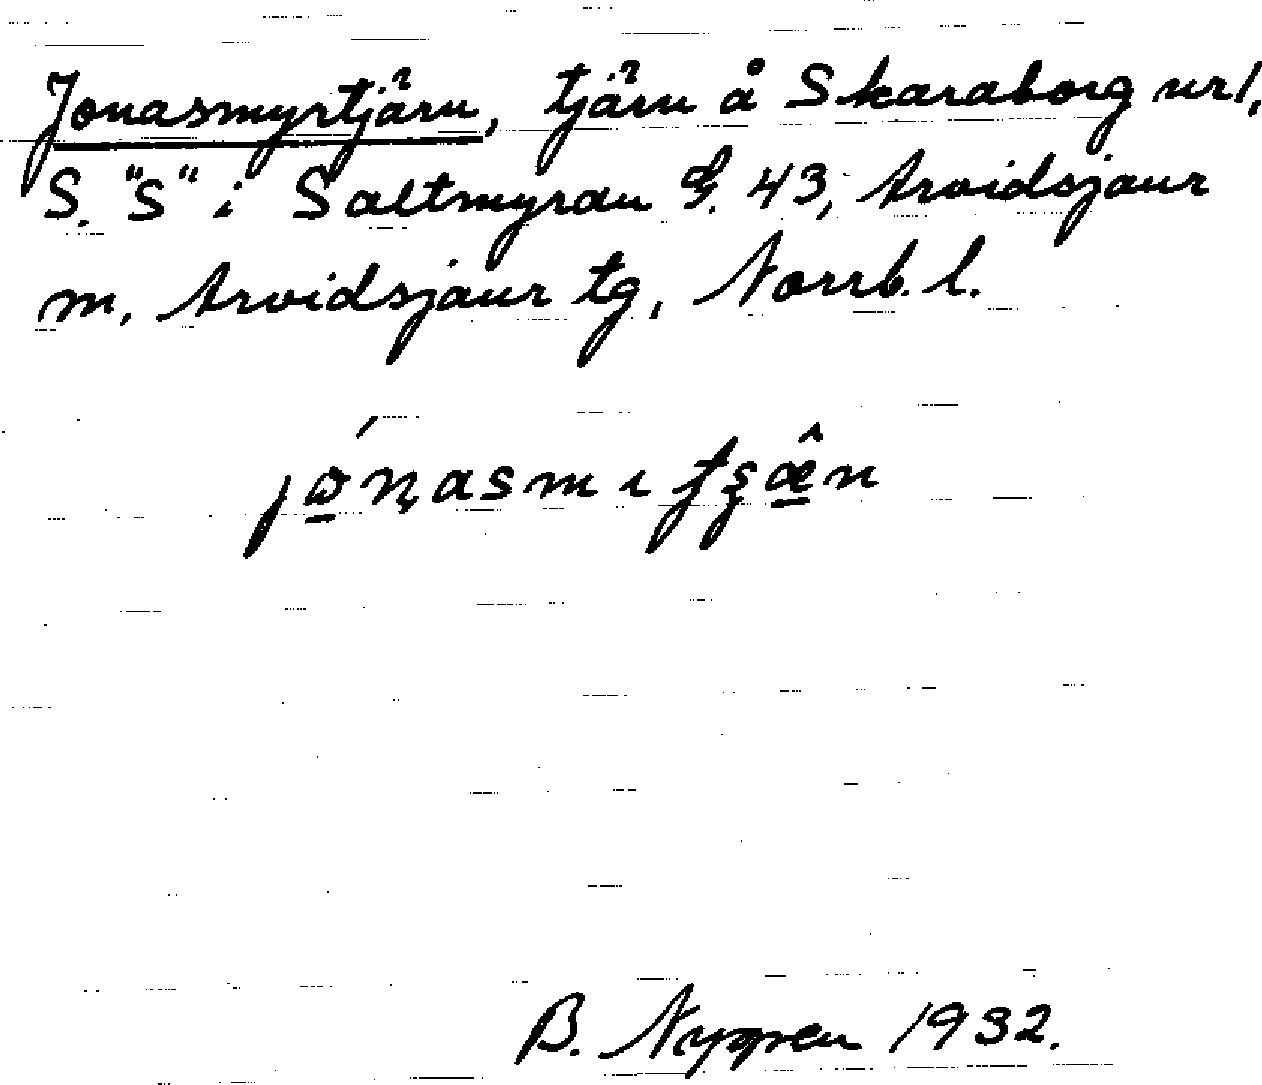 Jonasmyrtjärn, tjärn å Skaraborg url,
S. "S" i Saltmyran G. 43, Arvidsjaur
m, Arvidsjaur tg, Norrb. l.
B. Nygren 1932.